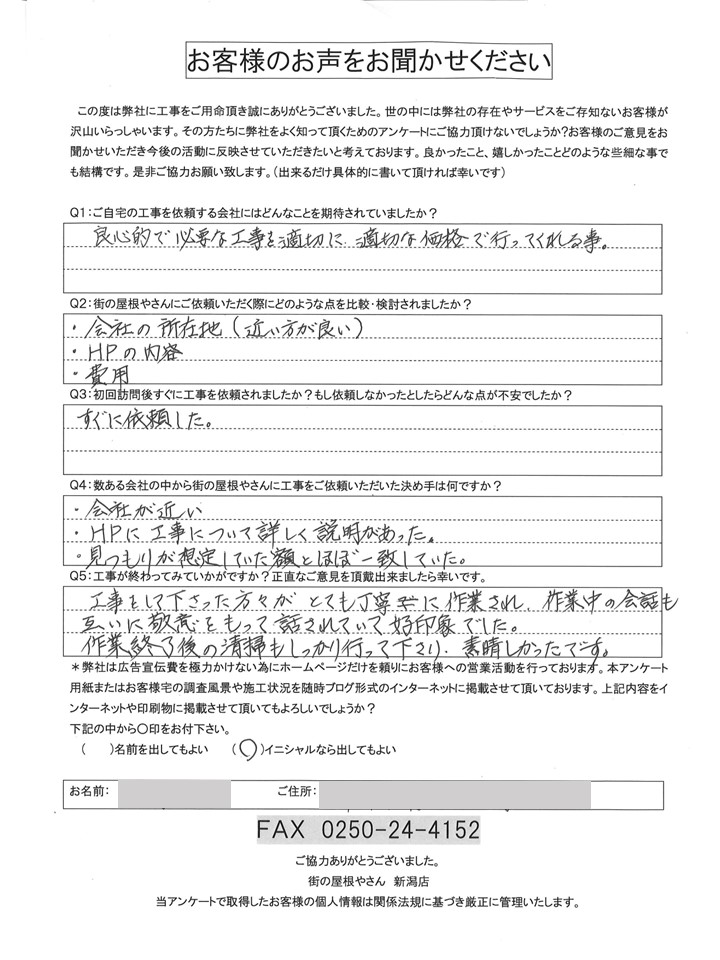 お客様のお声をお聞かせください
この度は弊社に工事をご用命頂き誠にありがとうございました。世の中には弊社の存在やサービスをご存知ないお客様が
沢山いらっしゃいます。その方たちに弊社をよく知って頂くためのアンケートにご協力頂けないでしょうか?お客様のご意見をお
聞かせいただき今後の活動に反映させていただきたいと考えております。良かったこと、嬉しかったことどのような些細な事で
も結構です。是非ご協力お願い致します。(出来るだけ具体的に書いて頂ければ幸いです)
Q1:ご自宅の工事を依頼する会社にはどんなことを期待されていましたか?
良心的で必要な工事を適切に、適切な価格で行ってくれる事。
Q2:街の屋根やさんにご依頼いただく際にどのような点を比較・検討されましたか?
・会社の所在地(近い方が良い)
・HPの内容
・費用
Q3:初回訪問後すぐに工事を依頼されましたか?もし依頼しなかったとしたらどんな点が不安でしたか?
すぐに依頼した。
Q4:数ある会社の中から街の屋根やさんに工事をご依頼いただいた決め手は何ですか?
・会社が近い
・HPに工事について詳しく説明があった。
・見つもりが想定していた額とほぼ一致していた。
Q5:工事が終わってみていかがですか?正直なご意見を頂戴出来ましたら幸いです。
工事をして下さった方々がとても丁寧に作業され、作業中の会話も
互いに敬意をもって話されていて好印象でした。
作業終了後の清掃もしっかり行って下さり、素晴しかったです。
*弊社は広告宣伝費を極力かけない為にホームページだけを頼りにお客様への営業活動を行っております。本アンケート
用紙またはお客様宅の調査風景や施工状況を随時ブログ形式のインターネットに掲載させて頂いております。上記内容をイ
ンターネットや印刷物に掲載させて頂いてもよろしいでしょうか?
下記の中から〇印をお付下さい。
( )名前を出してもよい (〇)イニシャルなら出してもよい
お名前: ご住所:
FAX 0250-24-4152
ご協力ありがとうございました。
街の屋根やさん 新潟店
当アンケートで取得したお客様の個人情報は関係法規に基づき厳正に管理いたします。